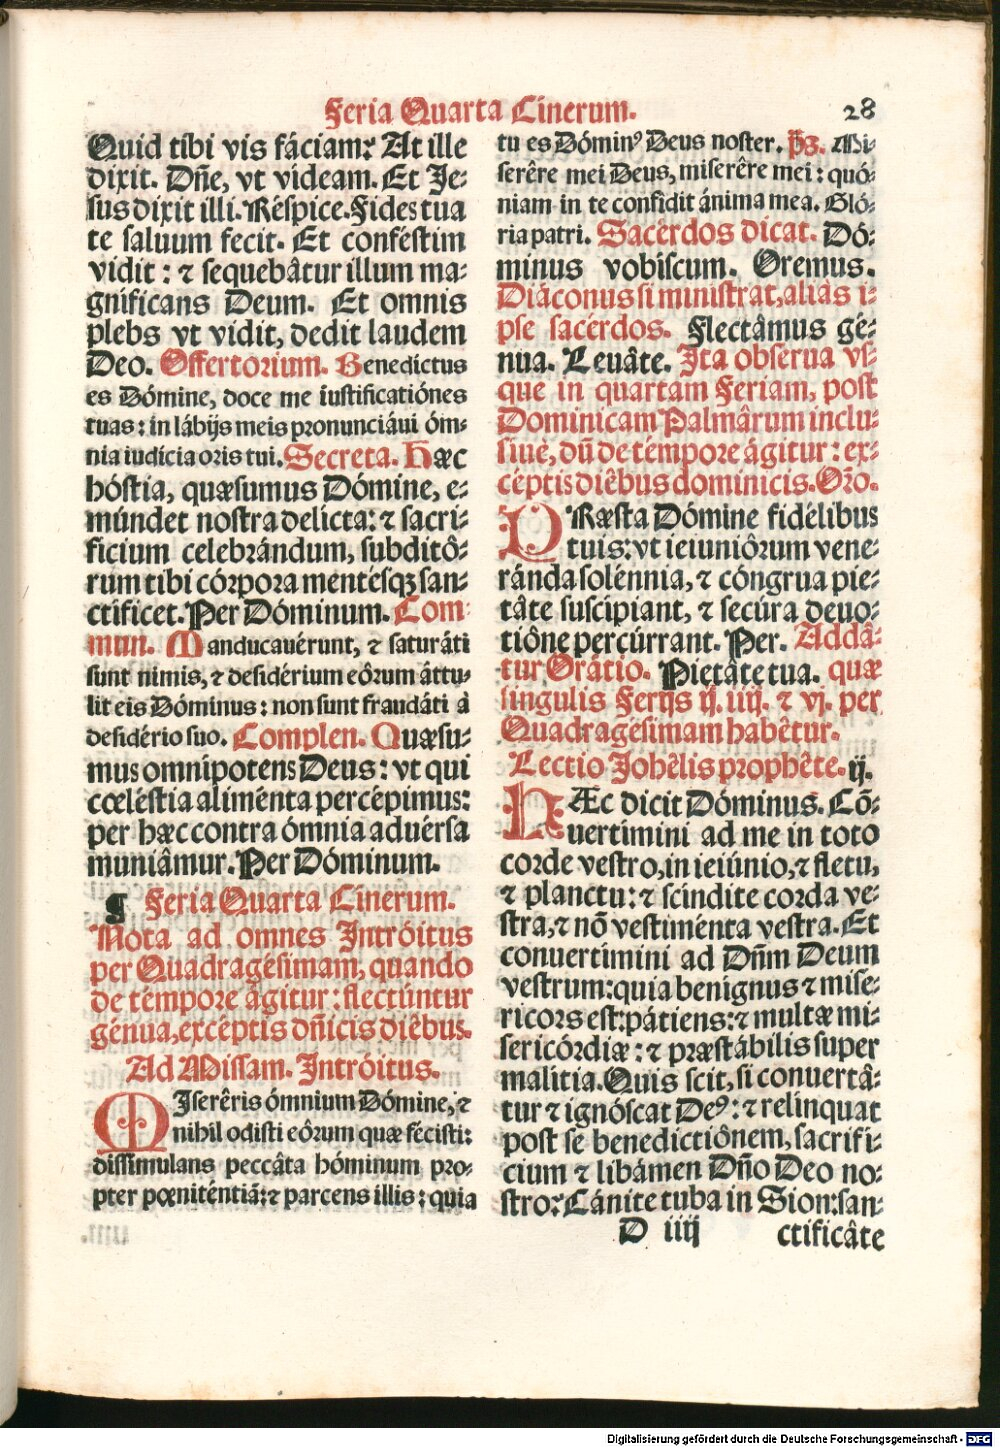 Feria Quarta Cinerum.
28
Quid tibi vis fáciam? At ille
dixit. Dñe, vt videam. Et Je-
sus dixit illi. Réspice. Fides tua
te saluum fecit. Et conféstim
vidit: ⁊ sequebâtur illum ma-
gníficans Deum. Et omnis
plebs vt vidit, dedit laudem
Deo. Offertorium. Benedíctus
es Dómine, doce me iustificatiónes
tuas: in lábijs meis pronunciáui óm-
nia iudícia oris tui. Secreta. Hæc
hóstia, quæsumus Dómine, e-
múndet nostra delícta: ⁊ sacri-
fícium celebrándum, subditô-
rum tibi córpora mentésqꝫ san-
ctíficet. Per Dóminum. Com-
mun. Manducauérunt, ⁊ saturáti
sunt nimis, ⁊ desidérium eôrum áttu-
lit eis Dóminus: non sunt fraudáti à
desidério suo. Complen. Quæsu-
mus omnípotens Deus: vt qui
cœléstia aliménta percépimus:
per hæc contra ómnia aduérsa
muniâmur. Per Dóminum.
¶ Feria Quarta Cinerum.
Nota ad omnes Intróitus
per Quadragésimam, quando
de témpore ágitur: flectúntur
génua, excéptis dñicis diêbus.
Ad Missam. Intróitus.
MIserêris ómnium Dómine, ⁊
nihil odísti eôrum quæ fecísti:
dissímulans peccâta hóminum pro-
pter pœniténtiã: ⁊ parcens illis: quia
tu es Dómin⁹ Deus noster. p̄s. Mi-
serêre mei Deus, miserêre mei: quó-
niam in te confídit ánima mea. Gló-
ria patri. Sacérdos dicat. Dó-
minus vobíscum. Oremus.
Diáconus si minístrat, aliâs i-
pse sacérdos. Flectâmus gé-
nua. Leuâte. Ita obsérua vs-
que in quartam Fériam, post
Domínicam Palmârum inclu-
síuè, dũ de témpore ágitur: ex-
céptis diêbus domínicis. Orõ.
PRæsta Dómine fidélibus
tuis: vt ieiuniôrum vene-
ránda solénnia, ⁊ cóngrua pie-
tâte suscípiant, ⁊ secúra deuo-
tiône percúrrant. Per. Addâ-
tur Orátio. Pietâte tua. quæ
síngulis Ferijs ij. iiij. ⁊ vj. per
Quadragésimam habêtur.
Lectio Johêlis prophête. ij.
HÆc dicit Dóminus. Cõ-
uertímini ad me in toto
corde vestro, in ieiúnio, ⁊ fletu,
⁊ planctu: ⁊ scíndite corda ve-
stra, ⁊ nõ vestiménta vestra. Et
conuertímini ad Dñm Deum
vestrum: quia benígnus ⁊ misé-
ricors est: pátiens: ⁊ multæ mi-
sericórdiæ: ⁊ præstábilis super
malítia. Quis scit, si conuertâ-
tur ⁊ ignóscat De⁹: ⁊ relínquat
post se benedictiônem, sacrifí-
cium ⁊ libámen Dño Deo no-
stro? Cánite tuba in Sion: san-
D iiij
ctificâte
Digitalisierung gefördert durch die Deutsche Forschungsgemeinschaft - DFG